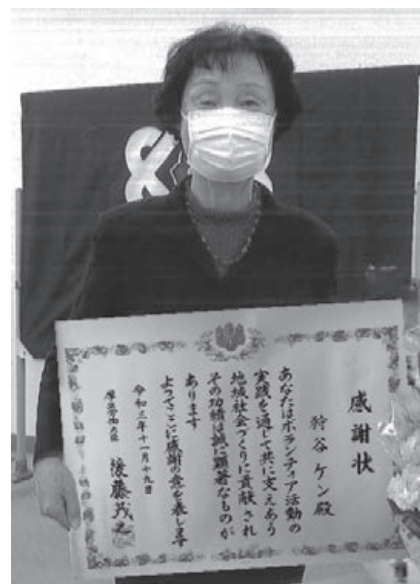 感謝状
狩谷 ケン殿
あなたはボランティア活動の
実践を通して共に支えあう
地域社会づくりに貢献され
その功績は誠に顕著なものが
あります
よってここに感謝の意を表します
令和三年十一月十九日
厚生労働大臣 後藤茂之